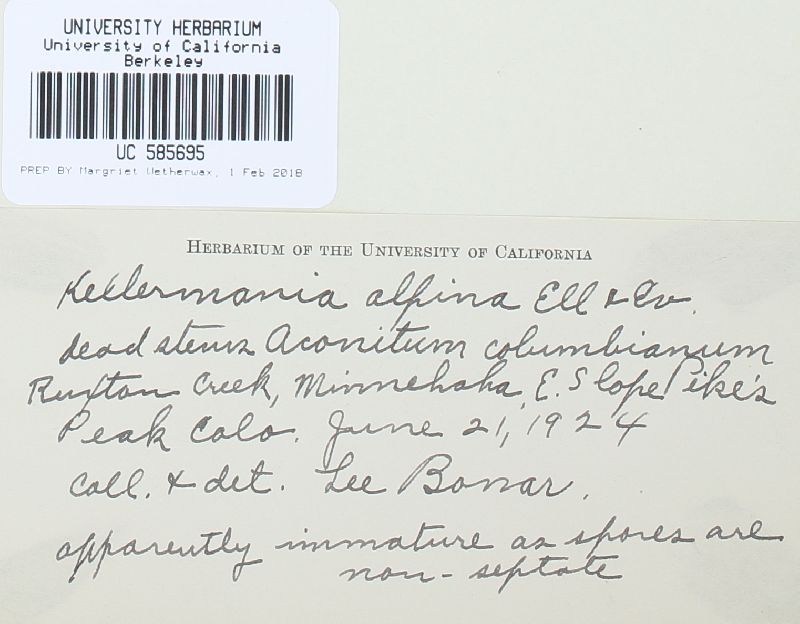 UNIVERSITY HERBARIUM
University of California
Berkeley
UC 585695
PREP BY Margriet Wetherwax, 1 Feb 2018
HERBARIUM OF THE UNIVERSITY OF CALIFORNIA
Kellermania alpina Ell & Ev.
dead stems Aconitum columbianum
Ruxton Creek, Minnehaha, E. Slope Pike's
Peak Colo. June 21, 1924
Coll. & det. Lee Bonar.
apparently immature as spores are
non-septate